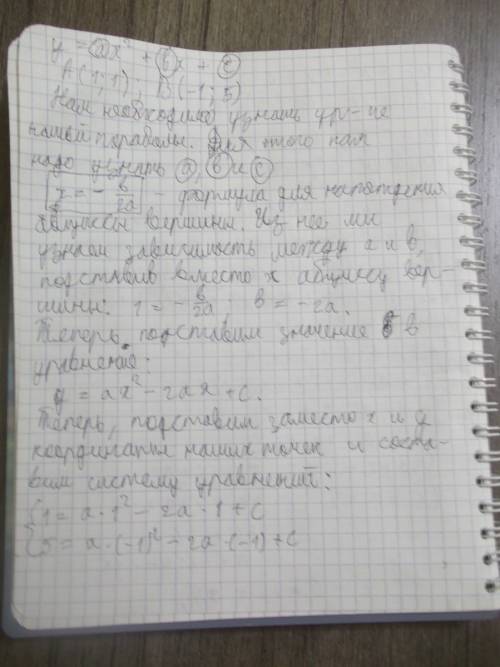 y = ax² + bx + c
A(1; 1) ; B(-1; 5)
Нам необходимо узнать ур-ие
нашей параболы. Для этого нам
надо узнать a, b и c
x = -b/2a - формула для нахождения
абциссы вершины. Из нее мы
узнаем зависимость между a и b,
подставив вместо x абциссу вер-
шины: 1 = -b/2a ; b = -2a.
Теперь подставим значение b в
уравнение:
y = ax² - 2ax + c.
Теперь, подставим заместо x и y
координаты наших точек и соста-
вим систему уравнений:
{1 = a · 1² - 2a · 1 + c
{5 = a · (-1)² - 2a · (-1) + c